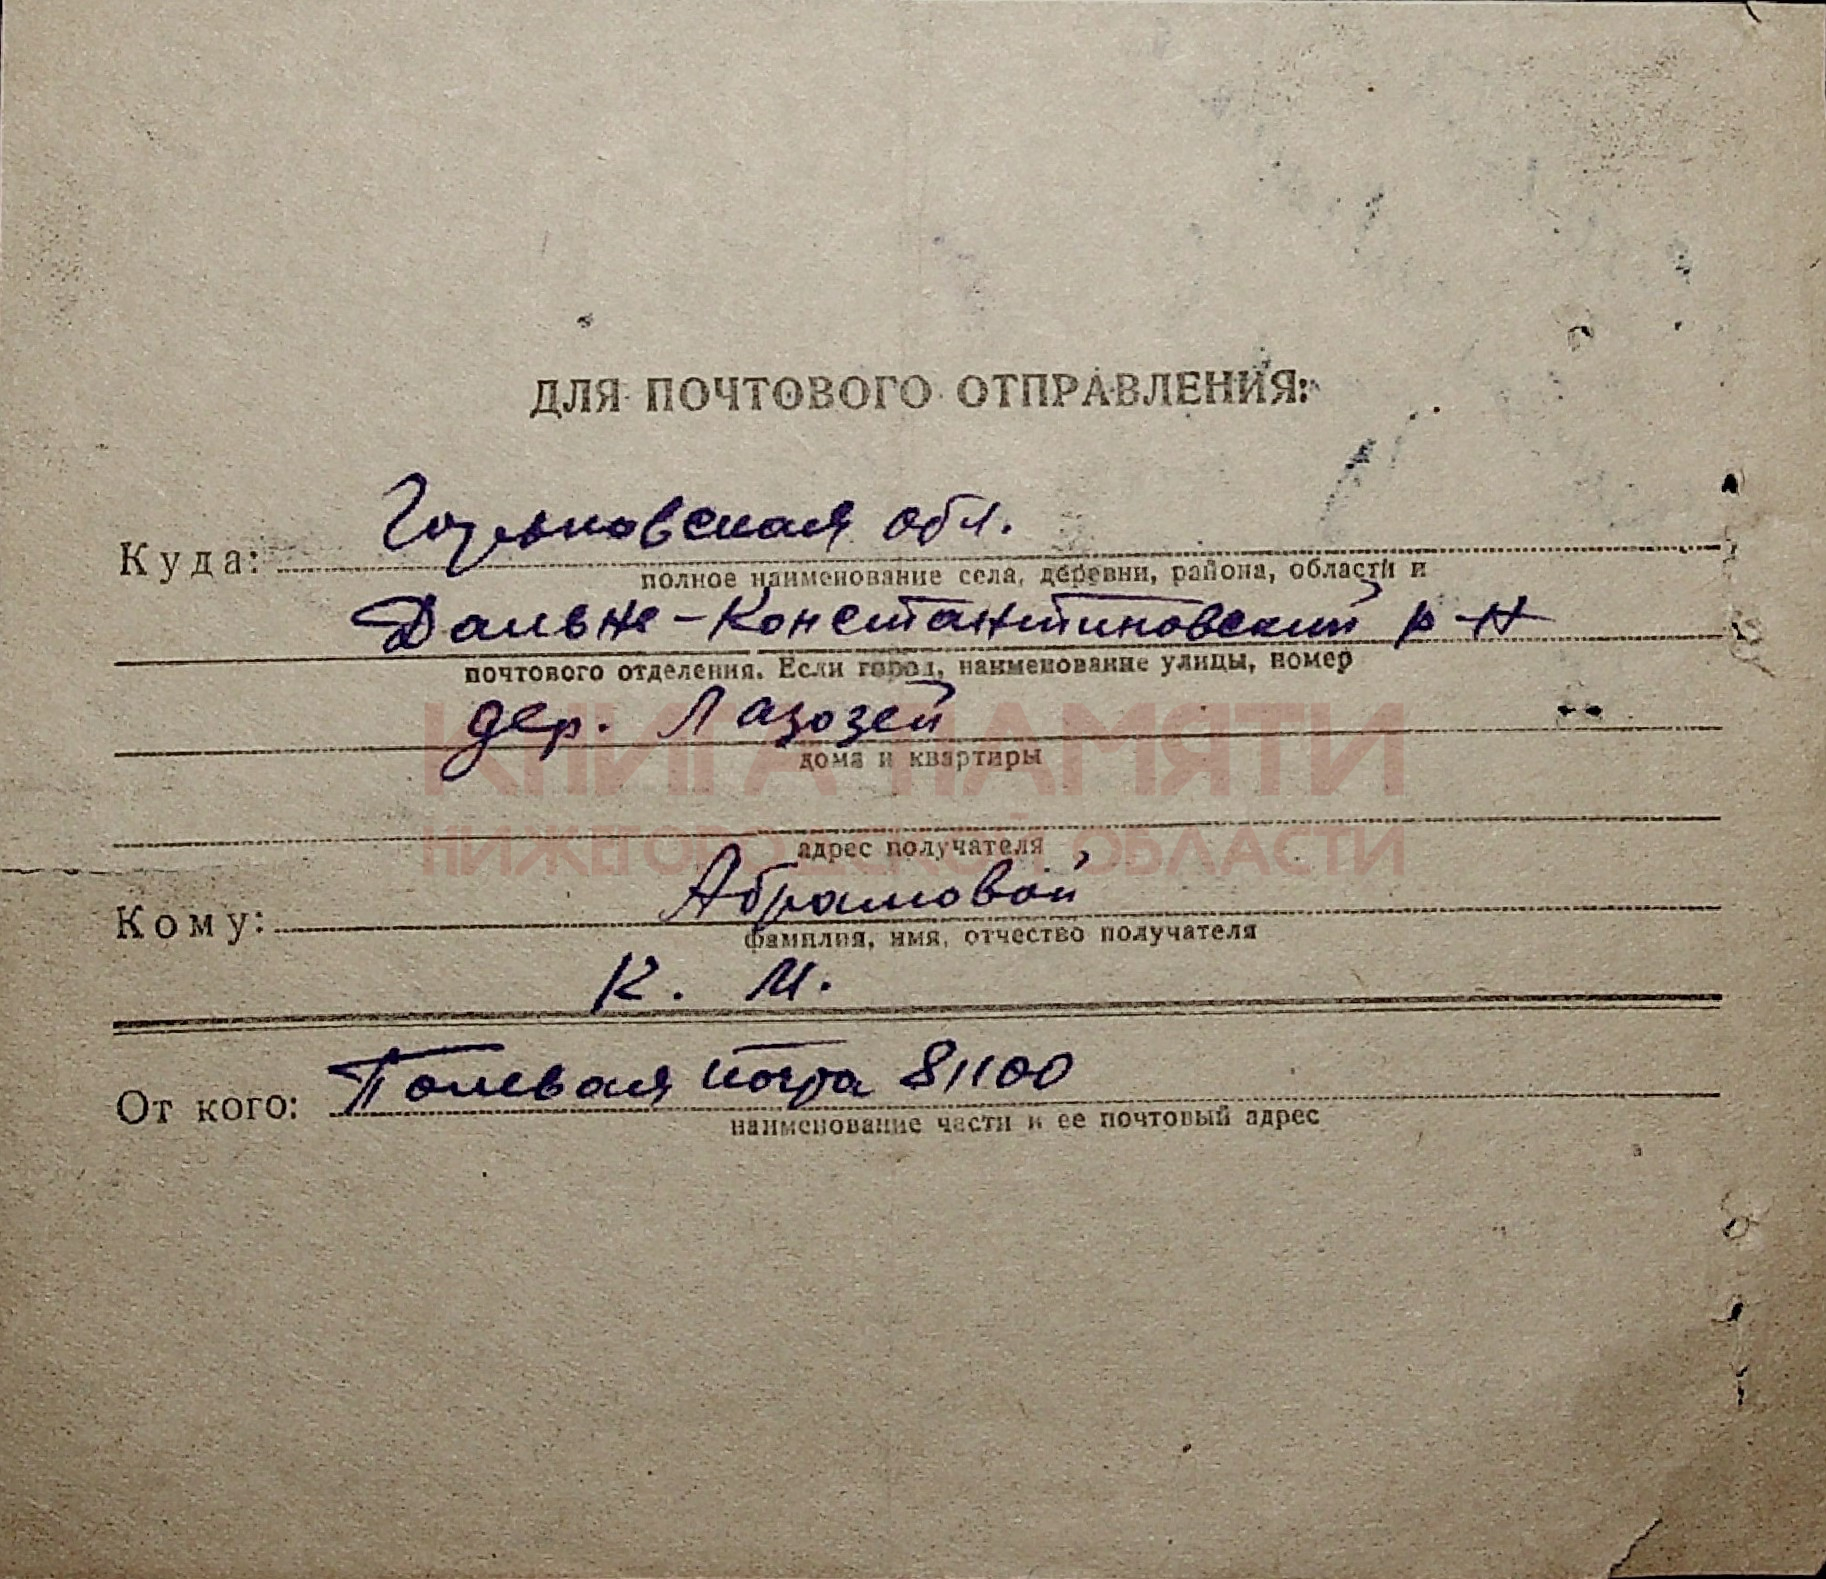 ДЛЯ ПОЧТОВОГО ОТПРАВЛЕНИЯ:
Куда: Горьковская обл.
полное наименование села, деревни, района, области и
Дальне-Константиновский р-н
почтового отделения. Если город, наименование улицы, номер
дер. Лазозей
КНИГА ПАМЯТИ
дома и квартиры
НИЖЕГОРОДСКОЙ ОБЛАСТИ
адрес получателя
Кому: Абрамовой
фамилия, имя, отчество получателя
К. М.
От кого: Полевая почта 81100
наименование части и ее почтовый адрес